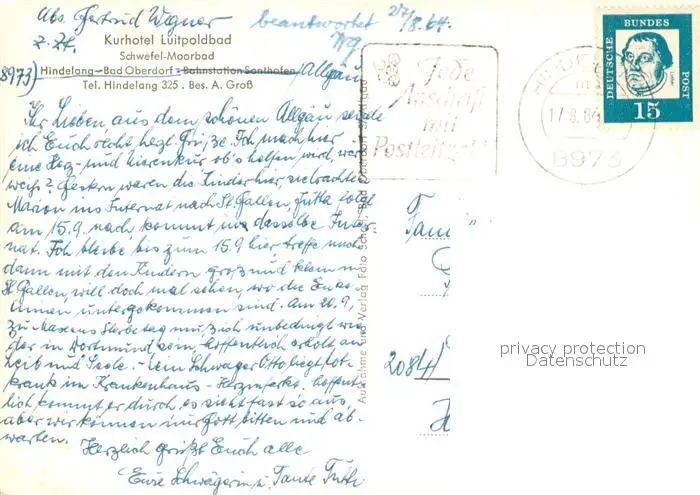 Abs. Gertrud Wegner
z. Zt.
beantwortet 27/8.64.
Kurhotel Luitpoldbad
Schwefel-Moorbad
8973) Hindelang-Bad Oberdorf - Bahnstation Sonthofen /Allgäu
Tel. Hindelang 325 . Bes. A. Groß
Ihr Lieben, aus dem schönen Allgäu sende
ich Euch recht herzl. Grüße. Ich mach hier
eine Herz- und Nierenkur ob's helfen wird, wer
weiß? Gestern waren die Kinder hier, sie brachten
Marion ins Internat nach St. Gallen, Jutta folgt
am 15.9. nach, kommt ins dasselbe Inter-
nat. Ich bleibe bis zum 15.9 hier treffe mich
dann mit den Kindern groß und klein in
St. Gallen, will doch mal sehen, wo die Enke-
linnen untergekommen sind. Am 20.9,
zu Maxens Sterbetag muß ich unbedingt wie
der in Dortmund sein, hoffentlich erholt an
Leib und Seele. - Mein Schwager Otto liegt tot-
krank im Krankenhaus - Herzinfarkt. hoffent
lich kommt er durch, es sieht fast so aus,
aber wir können nur Gott bitten und ab-
warten.
Herzlich grüßt Euch alle
Eure Schwägerin u. Tante
Aufnahme und Verlag Foto
Jede
Anschrift
mit
Postleitzahl
17.8.64
8973
DEUTSCHE
BUNDES
POST
15
Fami
2084)
privacy protection
Datenschutz